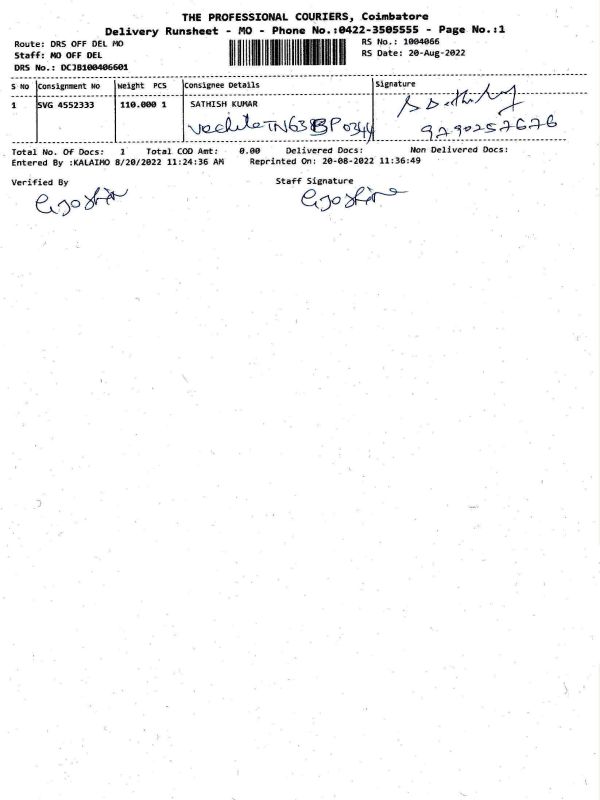 THE PROFESSIONAL COURIERS, Coimbatore
Delivery Runsheet - MO - Phone No.:0422-3505555 - Page No.:1
Route: DRS OFF DEL MO
RS No.: 1004066
Staff: MO OFF DEL
RS Date: 20-Aug-2022
DRS No.: DCJB100406601
S No Consignment No Weight PCS Consignee Details Signature
1 SVG 4552333 110.000 1 SATHISH KUMAR
TN63 BP0344 9790257676
Total No. Of Docs: 1 Total COD Amt: 0.00 Delivered Docs: Non Delivered Docs:
Entered By :KALAIMO 8/20/2022 11:24:36 AM Reprinted On: 20-08-2022 11:36:49
Verified By Staff Signature